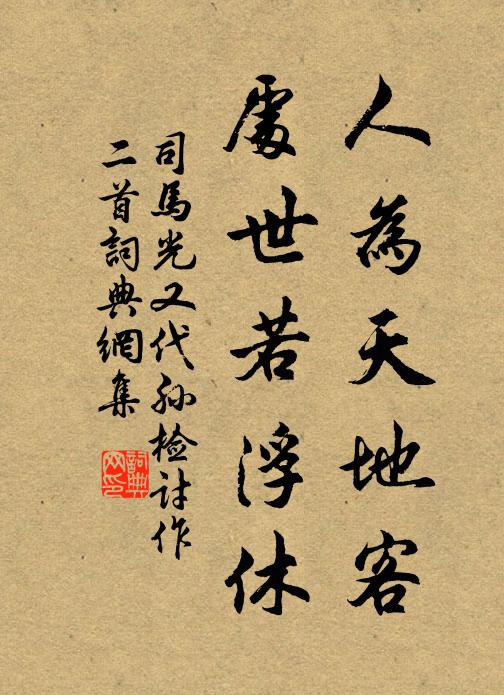 人為天地客
處世若浮休
司馬光又代孙檢討作
二首詞典網集
詞典网印